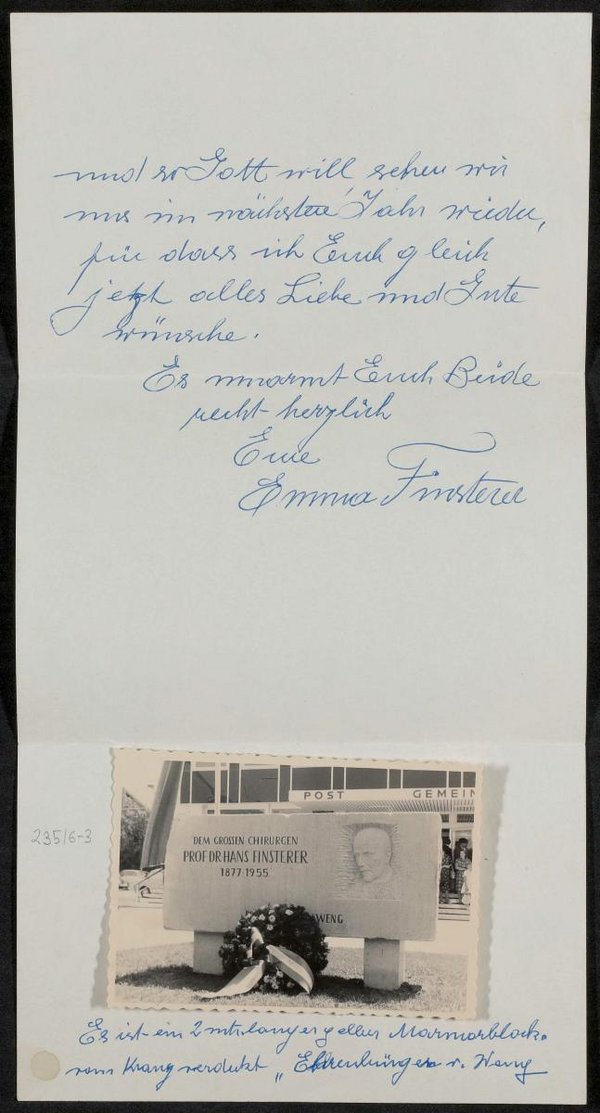 und so Gott will sehen wir
uns im nächsten Jahr wieder,
für dass ich Euch gleich
jetzt alles Liebe und Gute
wünsche.
Es umarmt Euch Beide
recht herzlich
Eure
Emma Finsterer
235/6-3
POST GEMEIN
DEM GROSSEN CHIRURGEN
PROF DR HANS FINSTERER
1877-1955
WENG
Es ist ein 2 mtr. langer gelber Marmorblock.
vom Kranz verdekt „Ehrenbürger v. Weng